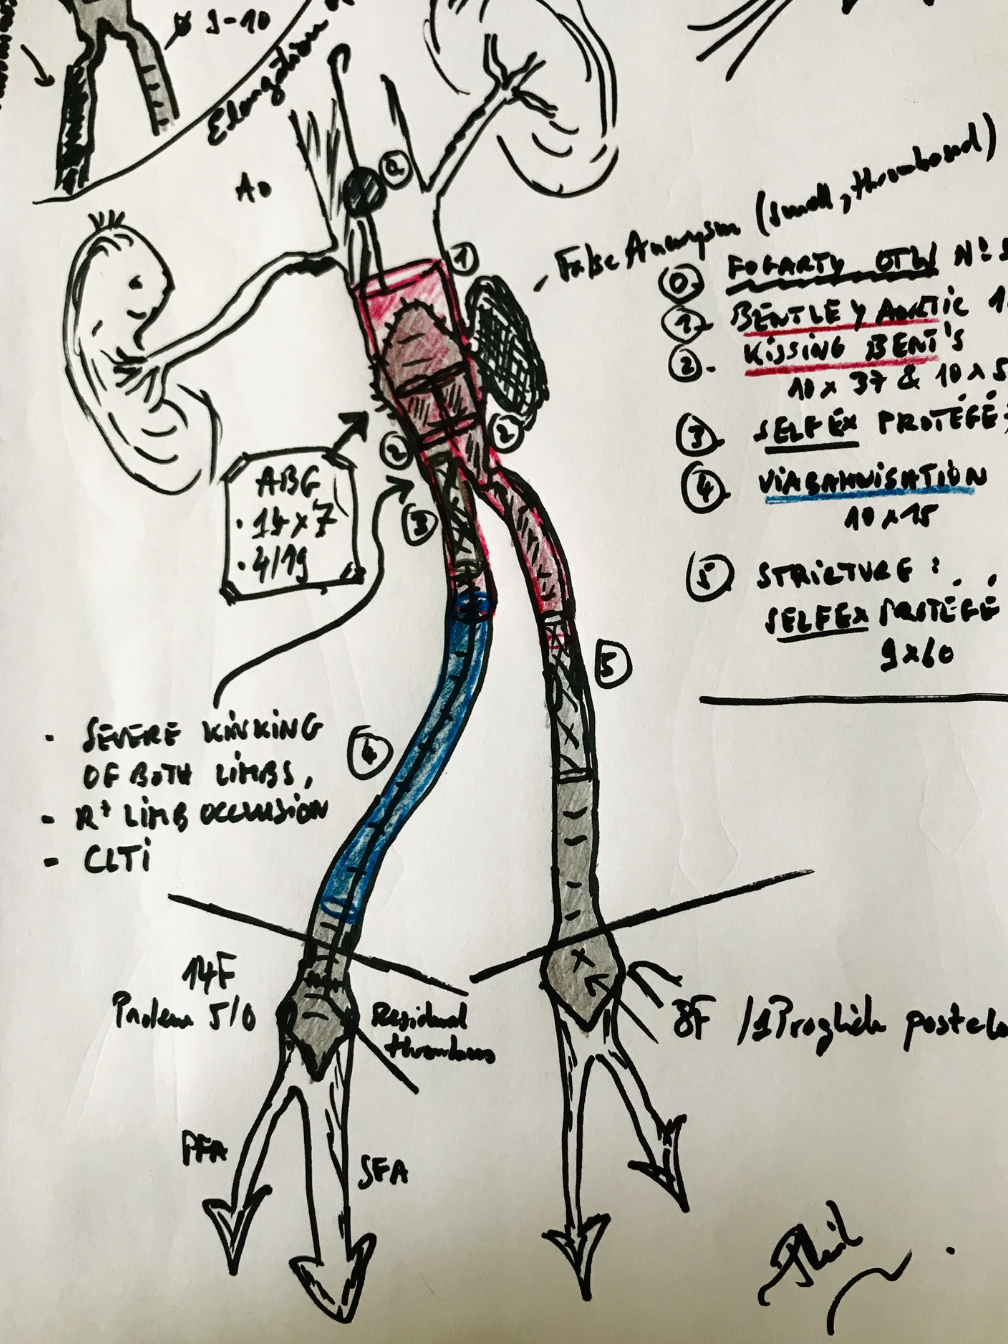 ø 9-10
Elongation
Ao
0
1
False Aneurysm (small, thrombosed)
0. FOGARTY OTW N°
1. BENTLEY AORTIC
2. KISSING BENT's
10 x 37 & 10 x 5
3. SELFEX PROTÉGÉ
4. VIABAHNISATION
10 x 15
5. STRICTURE :
SELFEX PROTÉGÉ
9 x 60
2
2
3
ABG
• 14 x 7
• 4/19
5
4
- SEVERE KINKING
OF BOTH LIMBS,
- Rt LIMB OCCLUSION
- CLTi
14F
Prolene 5/0
Residual
thrombus
8F / 1 Proglide
PFA
SFA
Phil